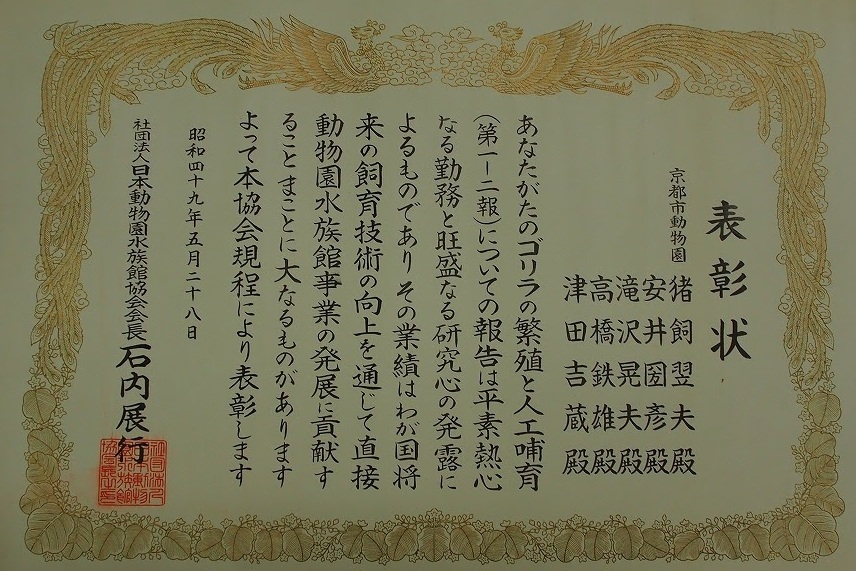 表彰状
京都市動物園
猪飼翌夫殿
安井圀彦殿
滝沢晃夫殿
高橋鉄雄殿
津田吉蔵殿
あなたがたのゴリラの繁殖と人工哺育
(第一−二報)についての報告は平素熱心
なる勤務と旺盛なる研究心の発露に
よるものでありその業績はわが国将
来の飼育技術の向上を通じて直接
動物園水族館事業の発展に貢献す
ることまことに大なるものがあります
よって本協会規程により表彰します
昭和四十九年五月二十八日
社団法人日本動物園水族館協会会長石内展行